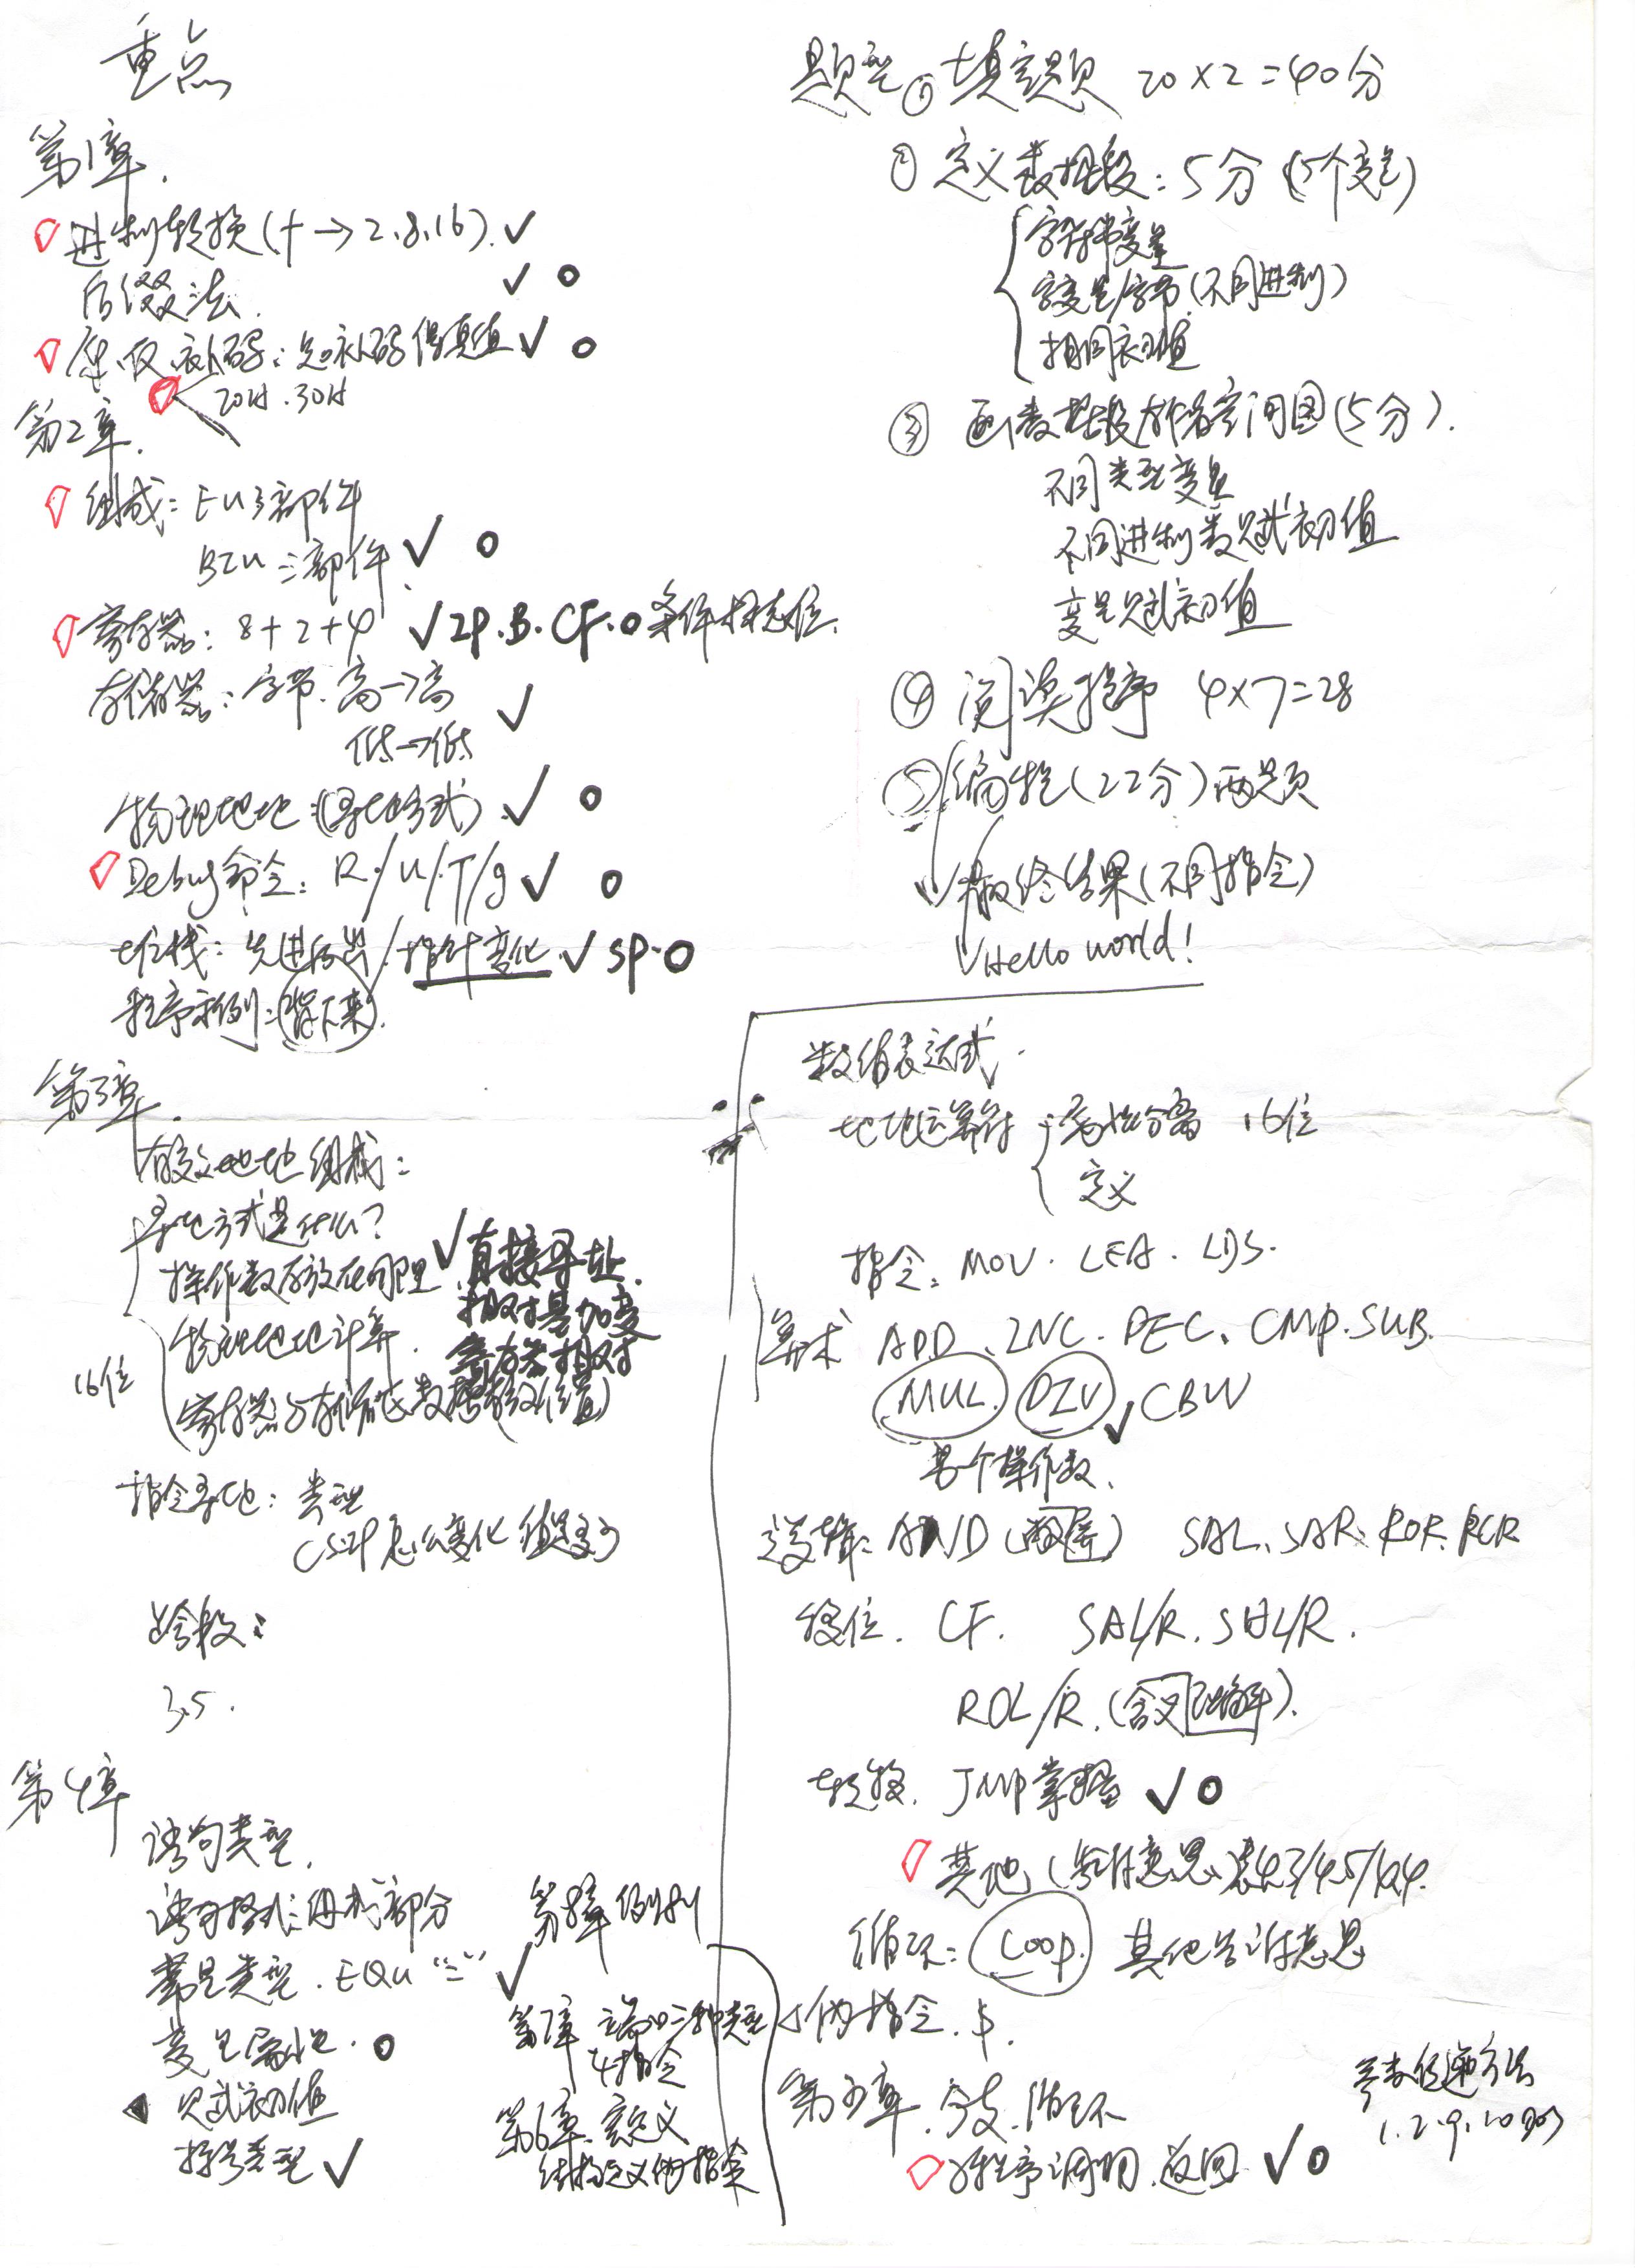 重点
第1章.
进制转换(十→2.8.16).✓
后缀法. ✓ o
原.反.补码:知补码得真值✓ o
20H.30H
第2章.
组成: EU 3部件
BIU 三部件 ✓ o
寄存器: 8+2+4 ✓ IP.B.CF.o 条件标志位.
存储器: 字节. 高→高 ✓
低→低
物理地址:(寻址方式) ✓ o
Debug命令: R./U/.T/g ✓ o
堆栈: 先进后出/指针变化 ✓ SP.o
程序示例:(背下来).
第3章.
有效地址组成:
寻址方式是什么?
操作数存放在哪里 ✓ 直接寻址.
相对基加变
物理地址计算. 寄存器相对
16位
寄存器与存储器(数据存放位置)
指令寻址: 类型
CS:IP怎么变化 值是多少
3.5.
第4章
语句类型.
语句格式:组成部分
常量类型. EQU "=" ✓
变量属性. o
赋初值
标号类型 ✓
第8章 例
第7章 端口二种类型
4指令
第6章.宏定义
结构定义伪指令
题型①填空题 20×2=40分
① 定义数据段: 5分 (5个变量)
字符串变量
字变量/字节(不同进制)
相同初值
③ 画数据段存储空间图(5分).
不同类型变量
不同进制数赋初值
变量赋初值
④ 阅读程序 4×7=28
⑤ 编程(22分)两题
✓最终结果(不同指令)
✓Hello world!
数值表达式.
地址运算符 16位
定义
指令: MOV. LEA. LDS.
算术 ADD、INC. DEC、CMP.SUB.
MUL. DIV ✓ CBW
某个操作数.
逻辑: AND SAL、SAR、ROR.RCR
移位. CF. SAL/R. SHL/R.
ROL/R.(含义理解).
转移. JMP掌握 ✓ o
其他 意思 表4.3/4.5/4.4.
循环: Loop. 其他告诉意思
伪指令. $.
第5章. 分支.循环
参数传递方法
1.2.9.10
子程序调用.返回. ✓ o